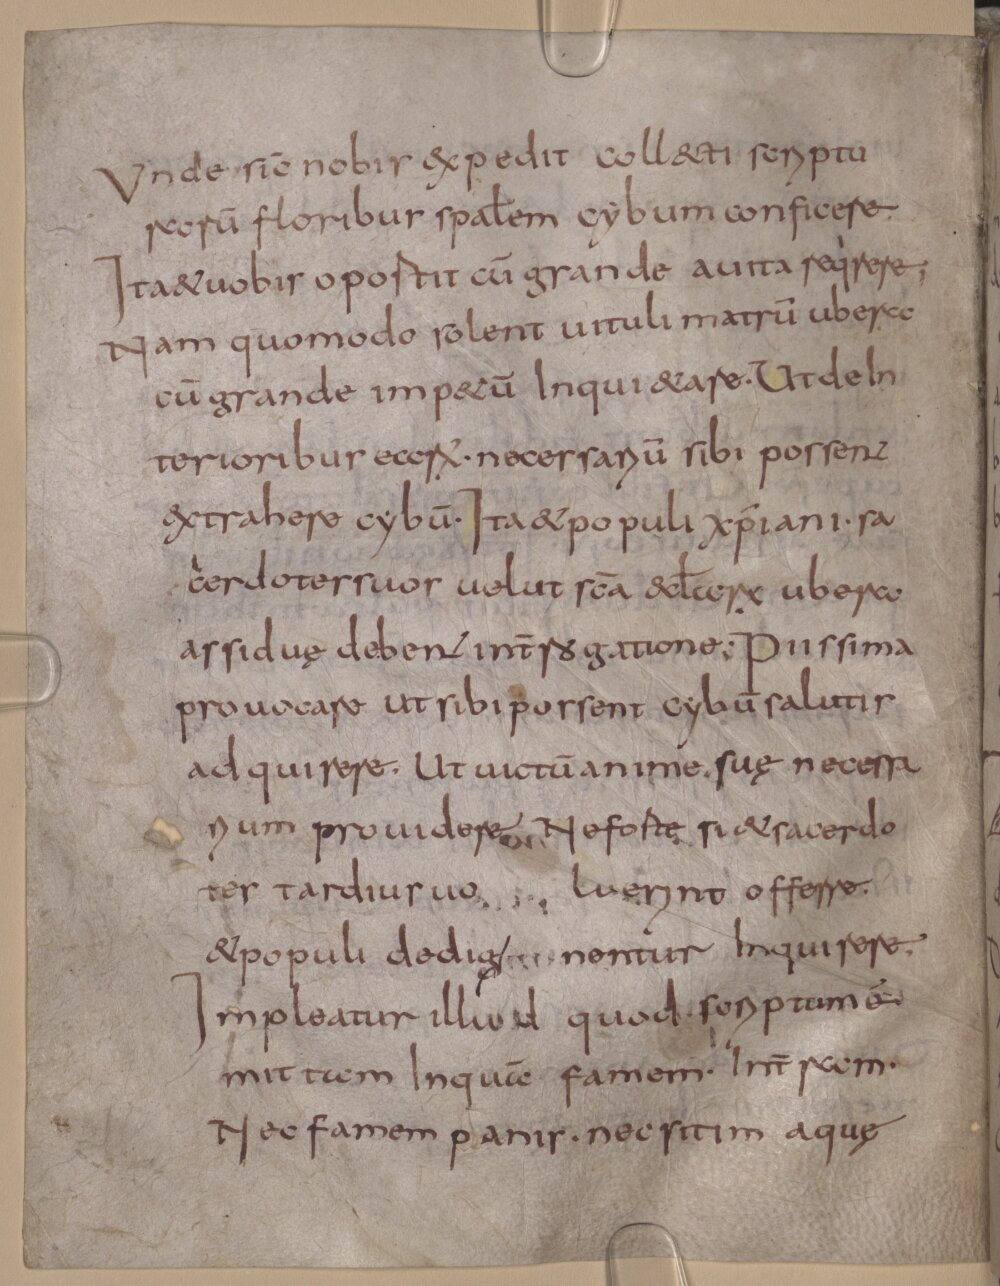 Vnde sic̄ nobis expedit coll&ti scriptu
rarū floribus sp̄alem cybum conficere.
Ita & uobis oportit cū grande auita req̇rere;
Nam quomodo solent uituli matrū ubera
cū grande imp&ū Inqui&are. Ut de In
terioribus earū. necessariū sibi possent
extrahere cybū. Ita & populi xp̄iani. sa
cerdotes suos uelut sc̄a &cl̄earū ubera
assiduę debent int̄rogatione; Piissima
prouocare ut sibi possent cybū salutis
adquirere. Ut uictū anime suę necessa
rium prouidere. Ne forte si & sacerdo
tes tardius uo luerint offerre.
& populi dedig nentur Inquirere.
Impleatur illud quod scriptum ē
mittam Inquid famem. In t̄ram.
Nec famem panis. nec sitim aquę